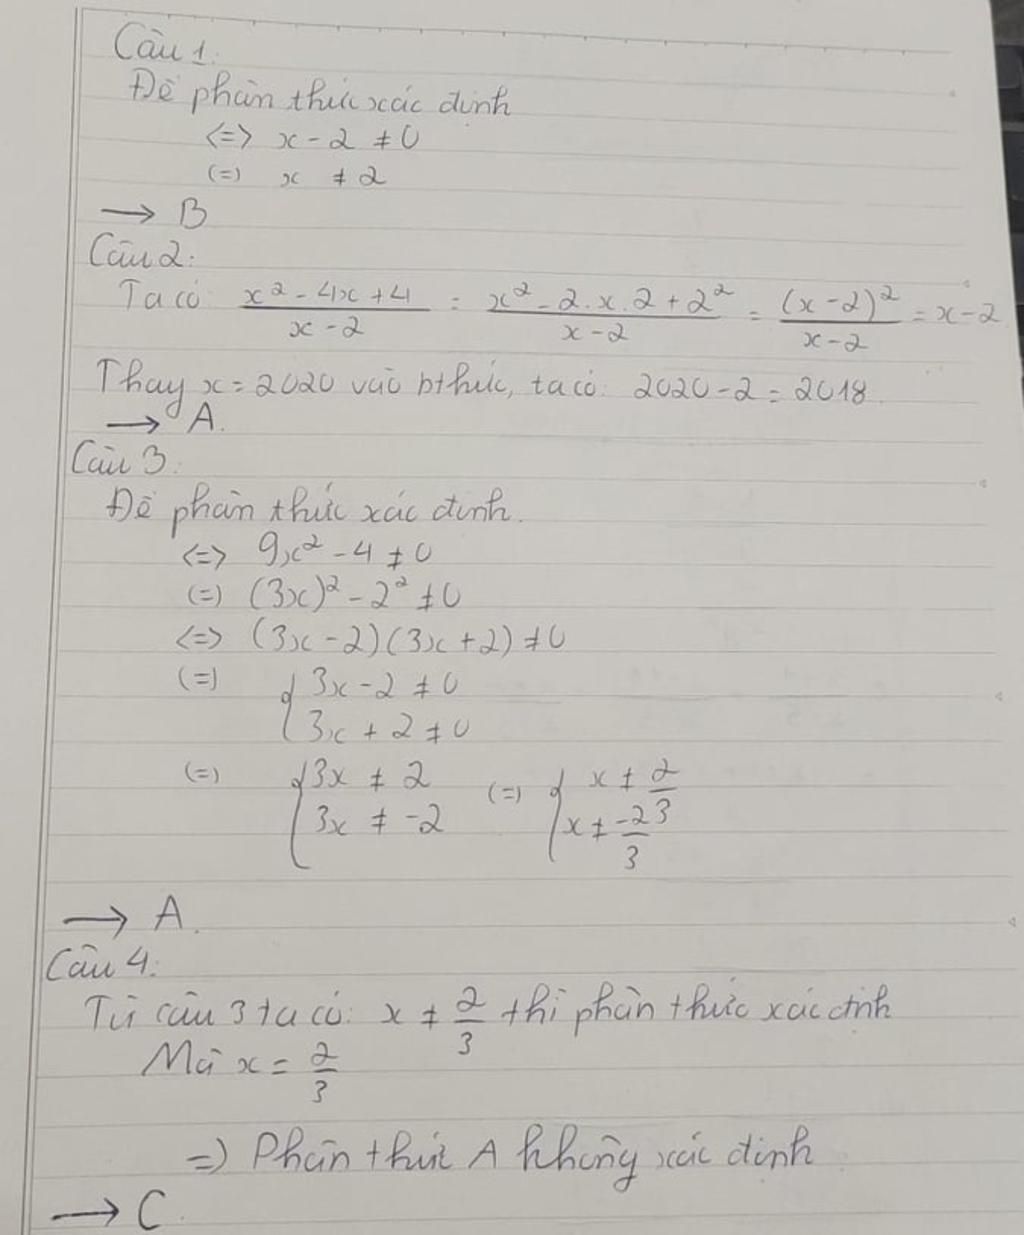 Câu 1:
Để phân thức xác định
<=> x - 2 ≠ 0
(=) x ≠ 2
→ B
Câu 2:
Ta có: \frac{x² - 4x + 4}{x - 2} = \frac{x² - 2.x.2 + 2²}{x - 2} = \frac{(x - 2)²}{x - 2} = x - 2
Thay x = 2020 vào bthức, ta có: 2020 - 2 = 2018.
→ A.
Câu 3:
Để phân thức xác định.
<=> 9x² - 4 ≠ 0
(=) (3x)² - 2² ≠ 0
<=> (3x - 2)(3x + 2) ≠ 0
(=) { 3x - 2 ≠ 0
3x + 2 ≠ 0
(=) { 3x ≠ 2 (=) { x ≠ \frac{2}{3}
3x ≠ -2 x ≠ \frac{-2}{3}
→ A.
Câu 4:
Từ câu 3 ta có: x ≠ \frac{2}{3} thì phân thức xác định
Mà x = \frac{2}{3}
=) Phân thức A không xác định
→ C.